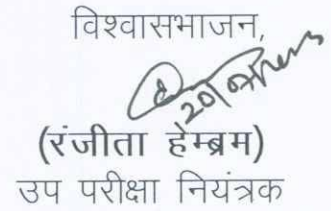 विश्वासभाजन,
(रंजीता हेम्ब्रम)
उप परीक्षा नियंत्रक